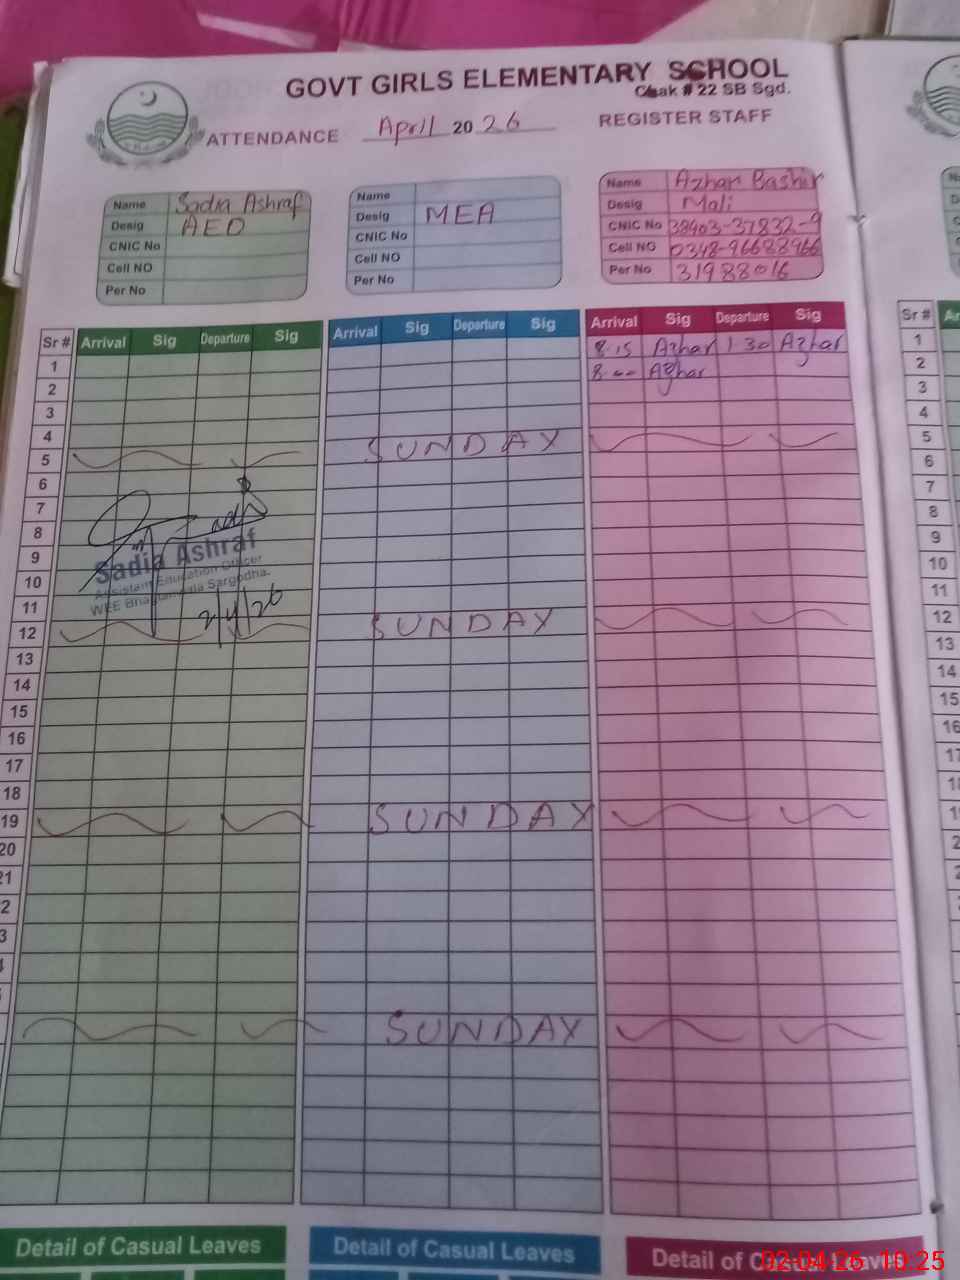 GOVT GIRLS ELEMENTARY SCHOOL
Chak # 22 SB Sgd.
ATTENDANCE April 2026 REGISTER STAFF
Name Sadia Ashraf
Desig AEO
CNIC No
Cell NO
Per No
Name
Desig MEA
CNIC No
Cell NO
Per No
Name Azhar Bashir
Desig Mali
CNIC No 38403-37832-9
Cell NO 0348-96688966
Per No 31988016
Sr # Arrival Sig Departure Sig Arrival Sig Departure Sig Arrival Sig Departure Sig Sr #
1 8.15 Azhar 1.30 Azhar 1
2 8.00 Azhar 2
3 3
4 4
5 SUNDAY 5
6 6
7 7
8 8
9 9
10 10
11 11
12 SUNDAY 12
Sadia Ashraf
Assistant Education Officer
WEE Sargodha.
2/4/26
13 13
14 14
15 15
16 16
17 17
18
19 SUNDAY
20
SUNDAY
Detail of Casual Leaves Detail of Casual Leaves Detail of Leaves
02-04-26 10:25